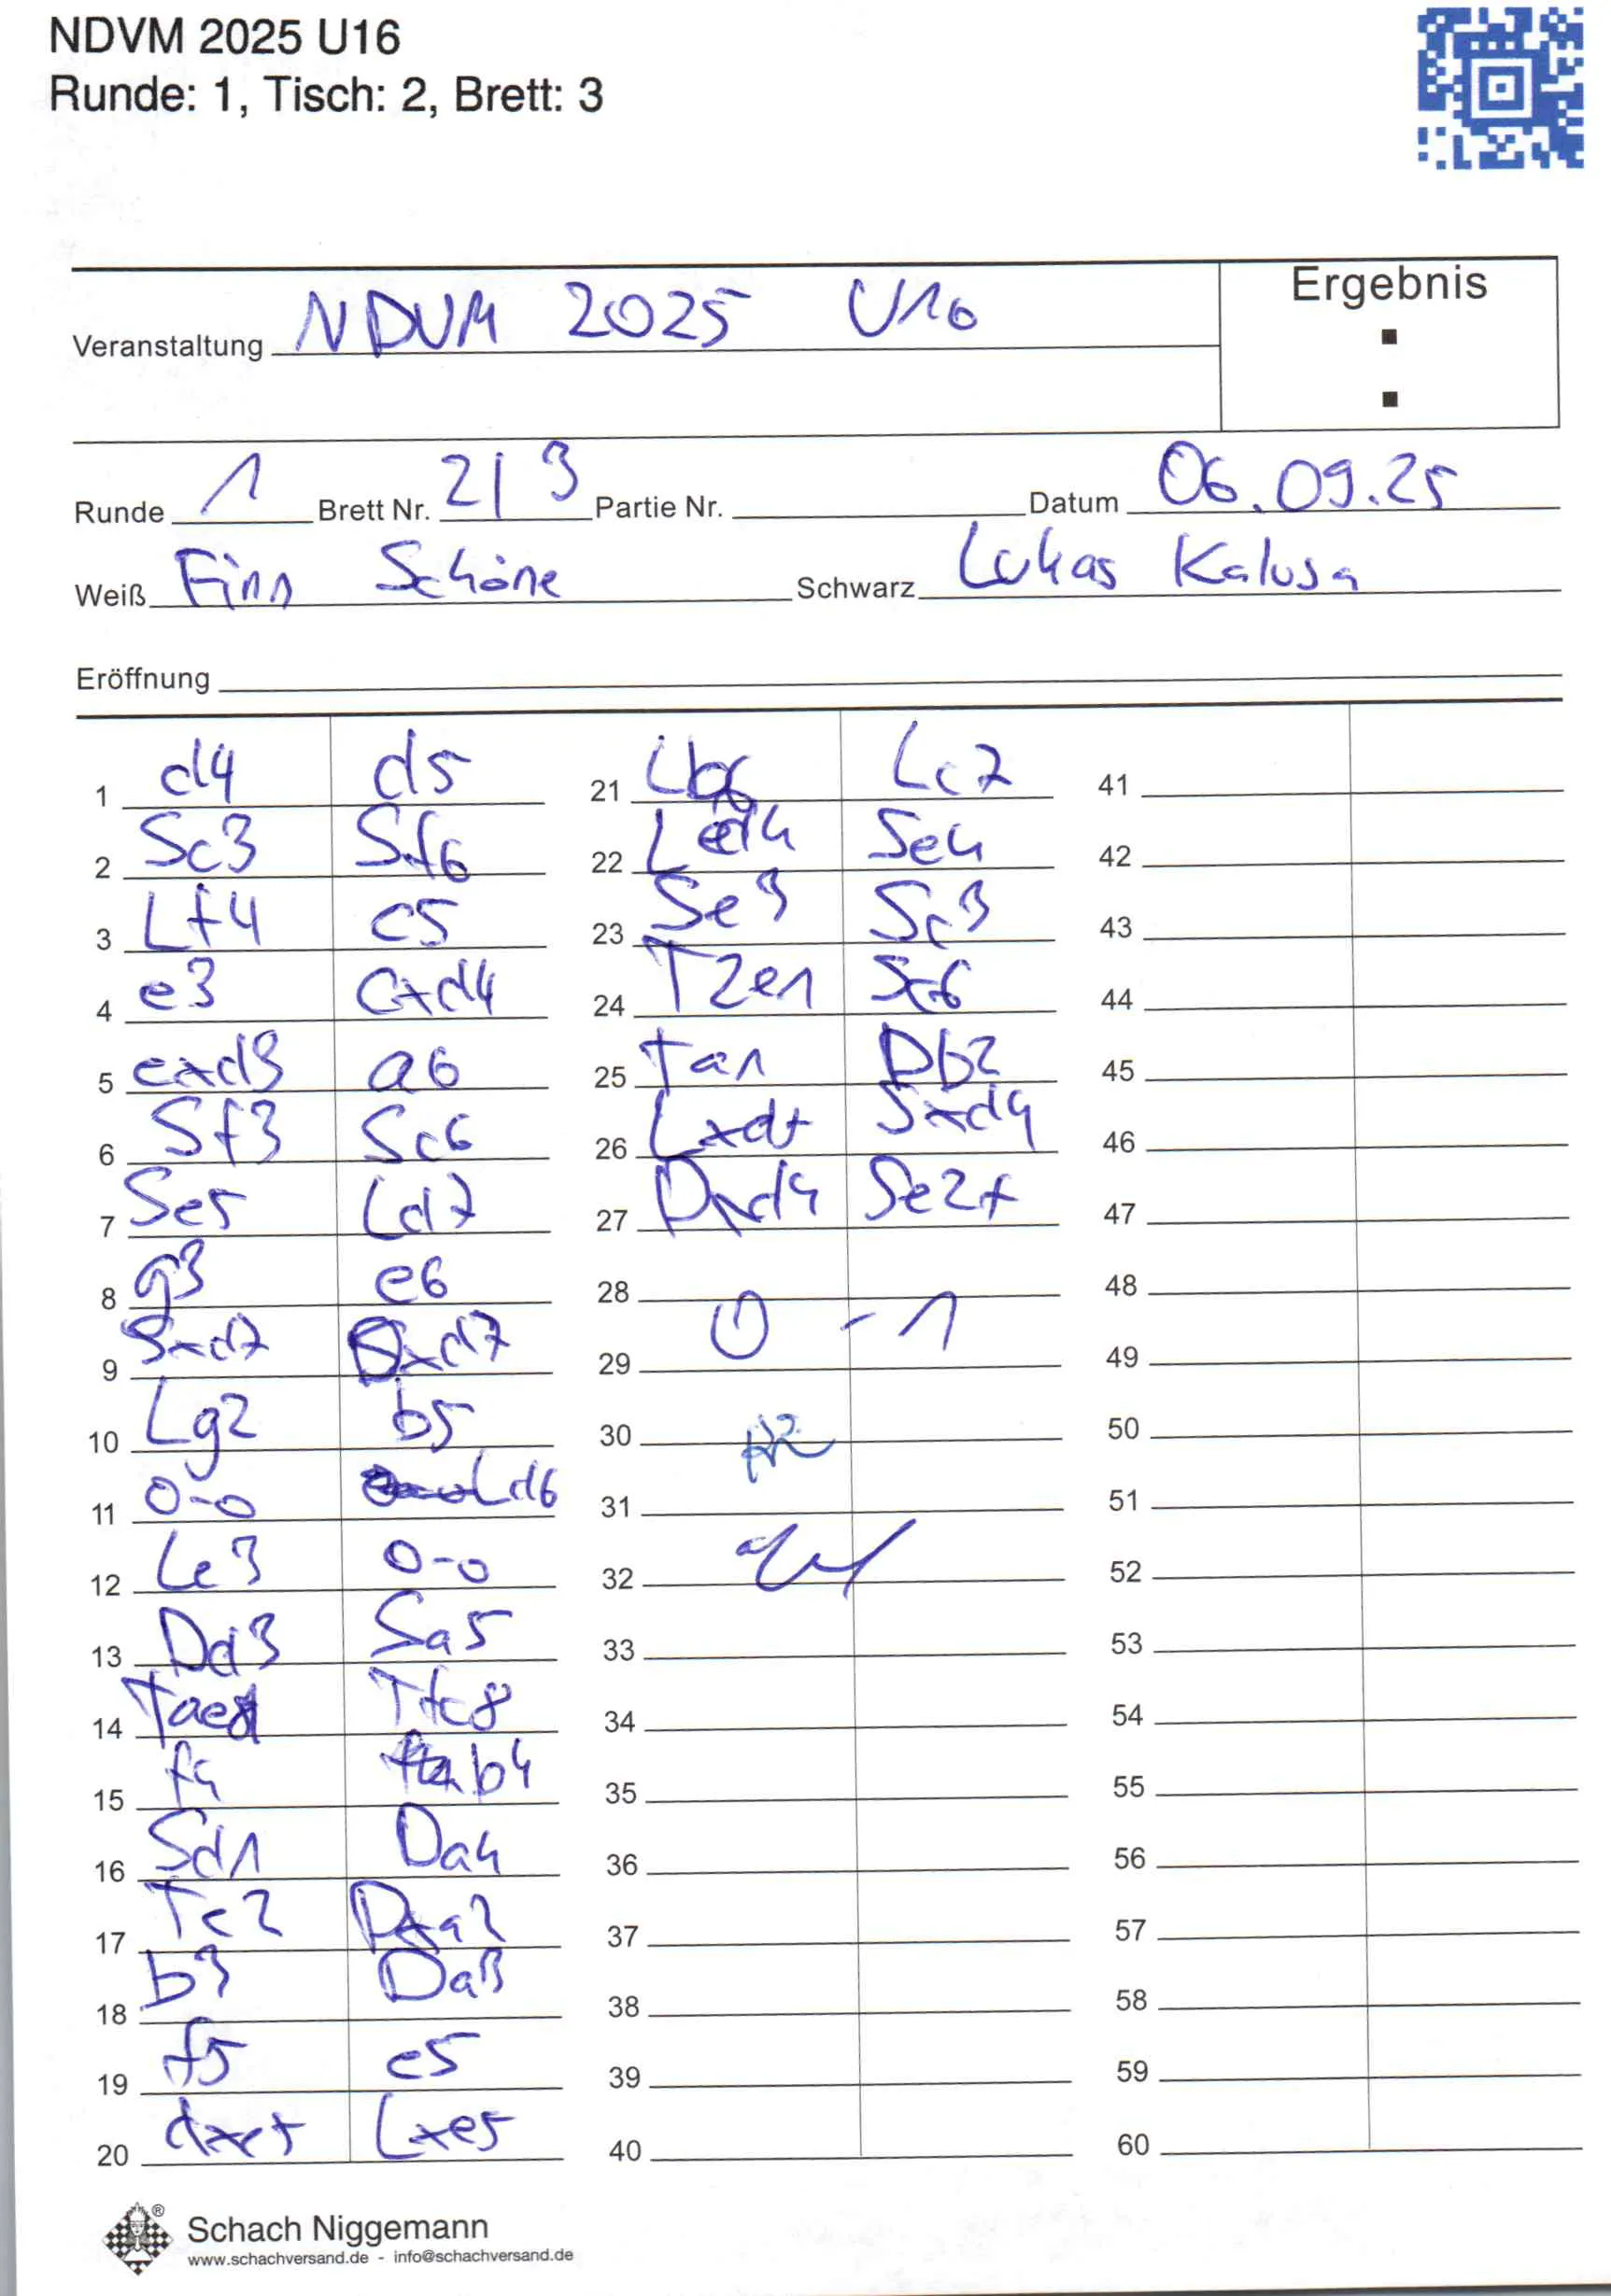 NDVM 2025 U16
Runde: 1, Tisch: 2, Brett: 3
Ergebnis
:
Veranstaltung NDVM 2025 U16
Runde 1 Brett Nr. 2|3 Partie Nr. Datum 06.09.25
Weiß Finn Schöne Schwarz Lukas Kalusa
Eröffnung
1 d4 d5
2 Sc3 Sf6
3 Lf4 c5
4 e3 cxd4
5 exd3 a6
6 Sf3 Sc6
7 Se5 Ld7
8 g3 e6
9 Sxd7 Dxd7
10 Lg2 b5
11 0-0 Ld6
12 Le3 0-0
13 Dd3 Sa5
14 Tae1 Tfc8
15 f4 b4
16 Sd1 Da4
17 Te2 Dxa2
18 b3 Da3
19 f5 e5
20 dxe5 Lxe5
21 Lb6 Lc7
22 Ld4 Se4
23 Se3 Sc3
24 T2e1 Sc6
25 Ta1 Db2
26 Lxd5 Sxd4
27 Dxd4 Se2+
28
29 0 - 1
30
31
32
33
34
35
36
37
38
39
40
41
42
43
44
45
46
47
48
49
50
51
52
53
54
55
56
57
58
59
60
Schach Niggemann
www.schachversand.de - info@schachversand.de